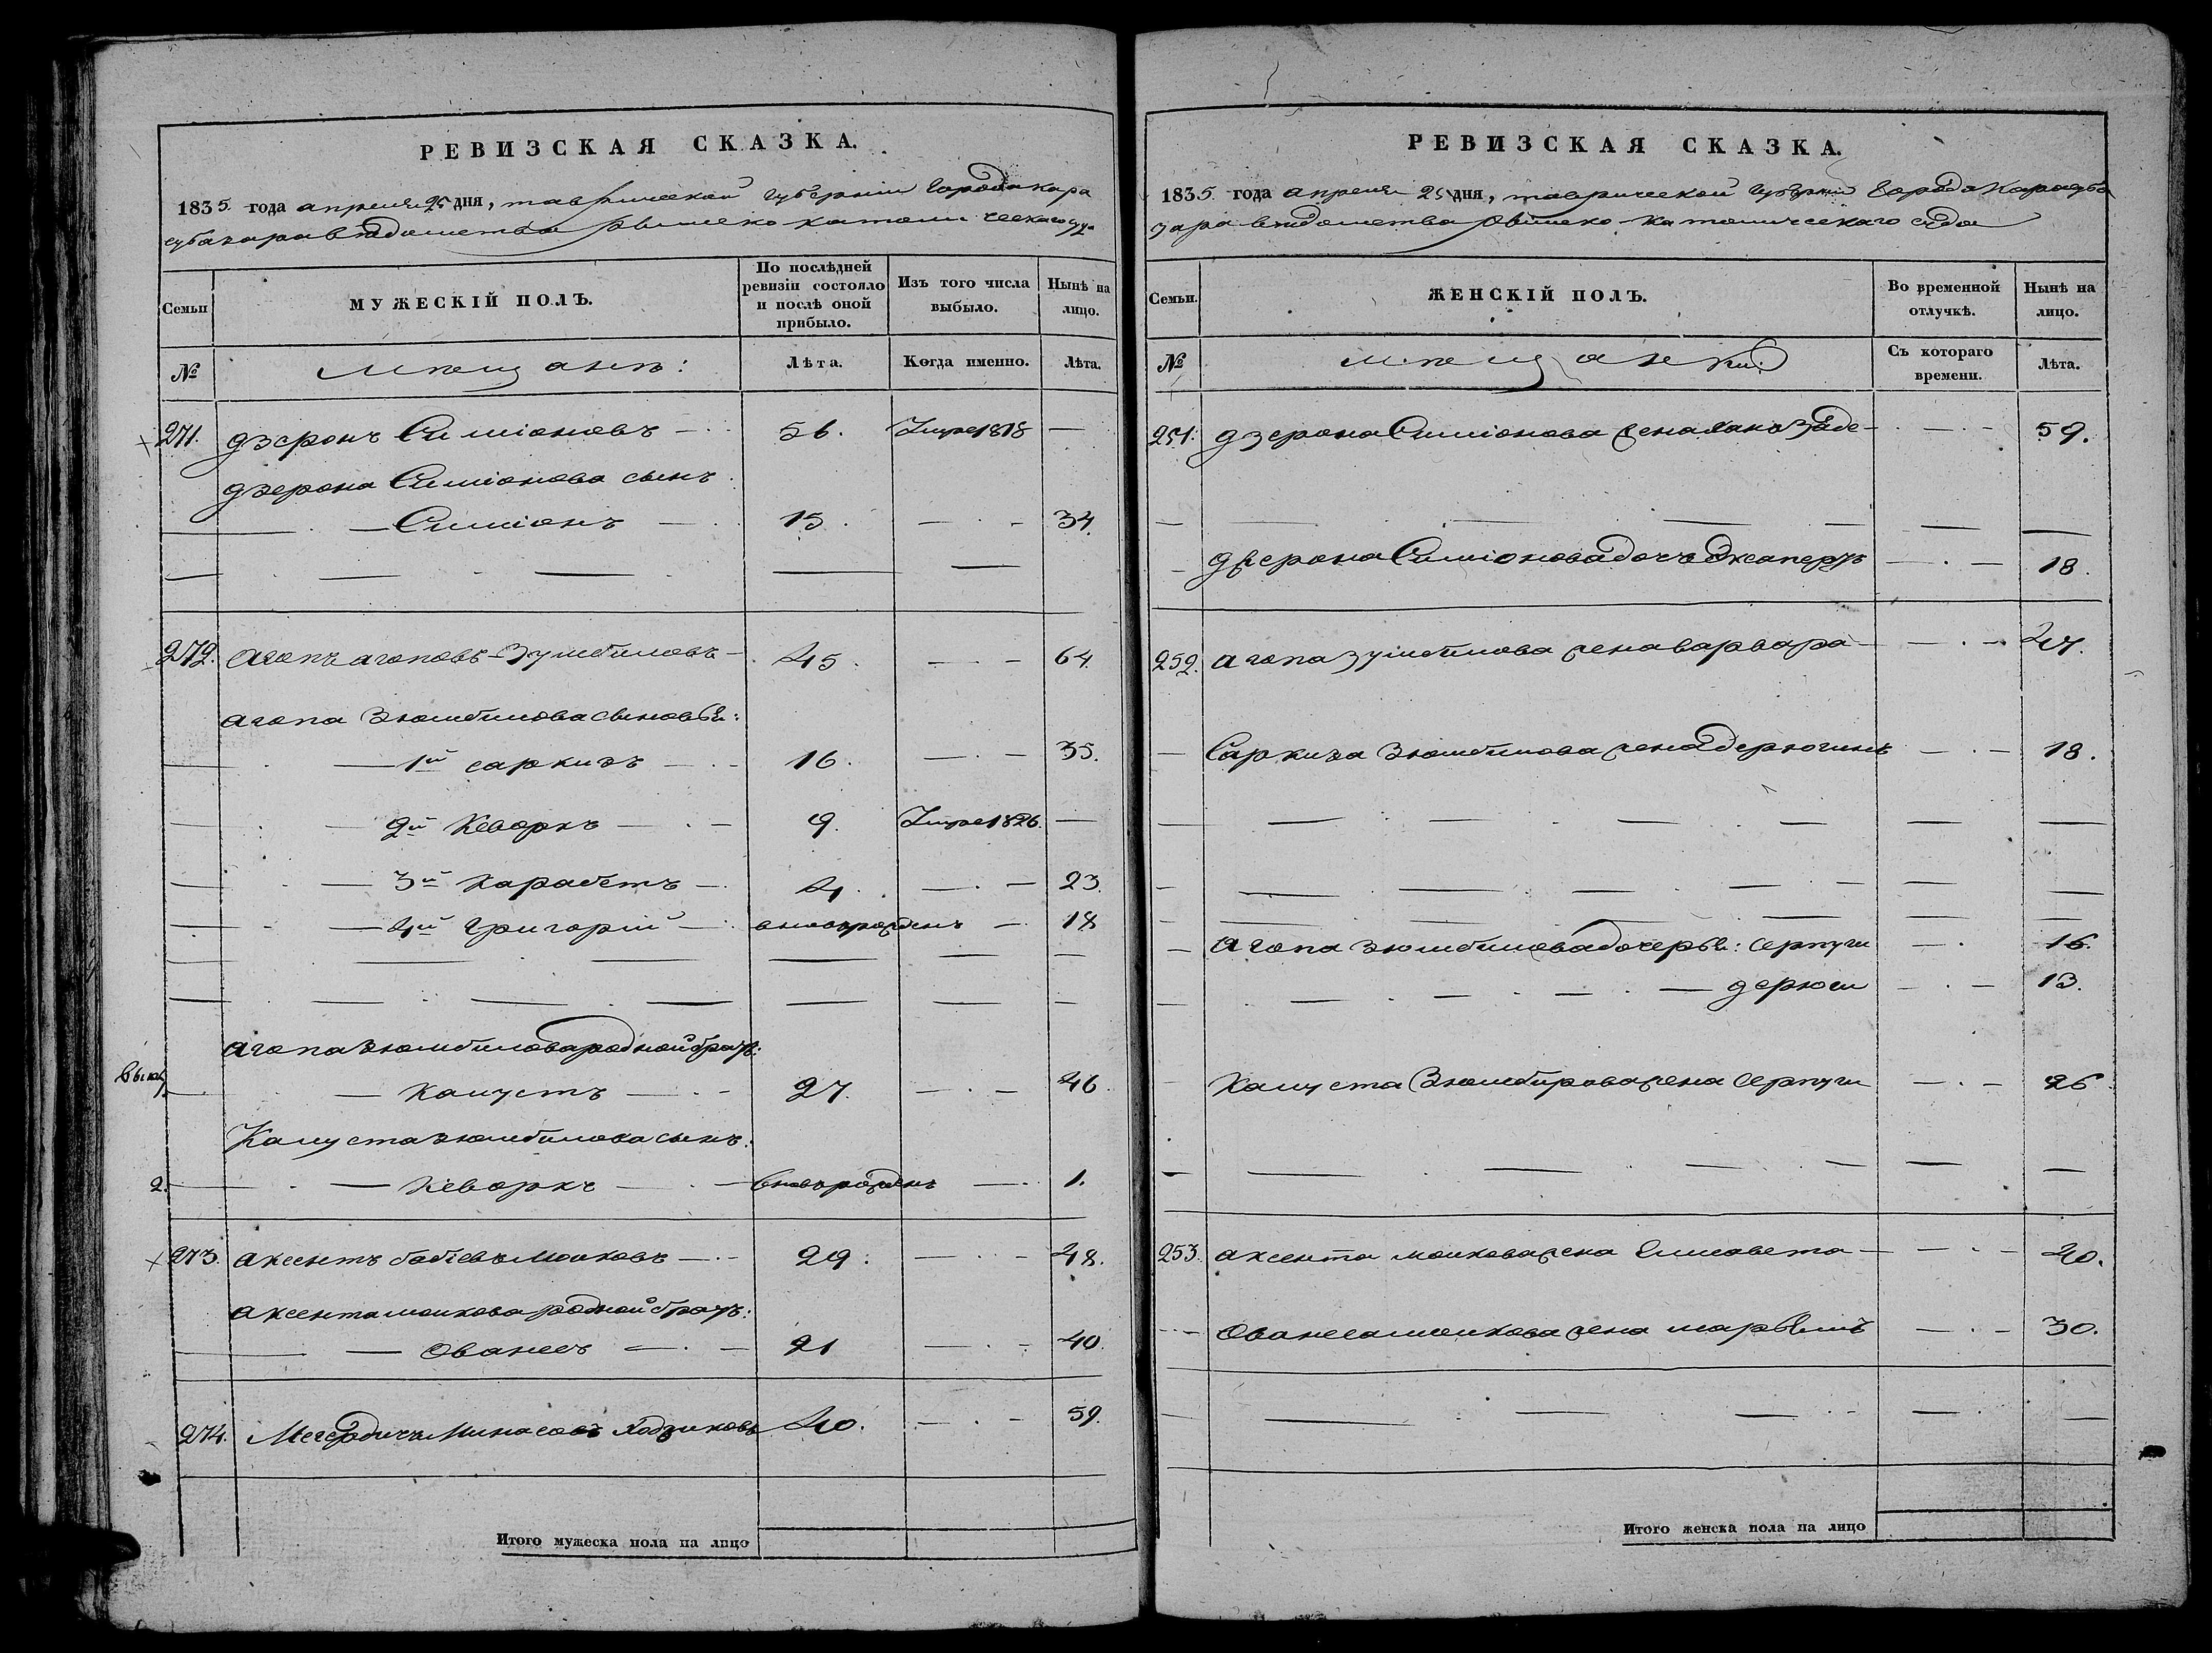 РЕВИЗСКАЯ СКАЗКА.
1835 года апреля 25 дня, таврической губернiи города кара
субазара вѣдомства римско-католическаго суда
Семьи
МУЖЕСКIЙ ПОЛЪ.
По послѣдней ревизiи состояло и послѣ оной прибыло.
Изъ того числа выбыло.
Нынѣ на лицо.
№ мѣщанъ: Лѣта. Когда именно. Лѣта.
271. дзеронъ Симiоновъ — 56. Умре 1818 —
дзерона Симiонова сынъ
— Симiонъ — 15. — 34.
272. агопъ агоповъ Зумбиловъ — 45. — 64.
агопа Зюмбилова сыновья:
— 1й саркизъ — 16. — 35.
— 2й Кеворкъ — 9. Умре 1826. —
— 3й Карабетъ — 4. — 23.
— 4й Григорiй — вновьрожденъ — 18
агопа Зюмбилова родной братъ:
1. — Калустъ — 27. — 46.
Калуста Зюмбилова сынъ:
2. — Кеворкъ — вновьрожденъ — 1.
273. аксентъ бабiевъ — 29. — 48.
аксента родной братъ:
— Ованесъ — 21 — 40.
274. Мегердичъ Минасовъ 40. — 59.
Итого мужеска пола на лицо
РЕВИЗСКАЯ СКАЗКА.
1835 года апреля 25 дня, таврической губернiи города Карасуба
зара вѣдомства римско-католическаго суда
Семьи.
ЖЕНСКIЙ ПОЛЪ.
Во временной отлучкѣ.
Нынѣ на лицо.
№ мѣщанки Съ котораго времени. Лѣта.
251. дзерона Симiонова жена — 59.
— дзерона Симiонова дочь — 18.
252. агопа Зумбилова жена варвара — 47.
— Саркиза Зюмбилова жена — 18.
— агопа Зюмбилова дочерья: серпуги — 16.
— дерюги — 13.
— Калуста Зюмбирова жена серпуги — 26
253. аксента жена Елисавета — 40.
— Ованеса жена марьямъ — 30.
Итого женска пола на лицо